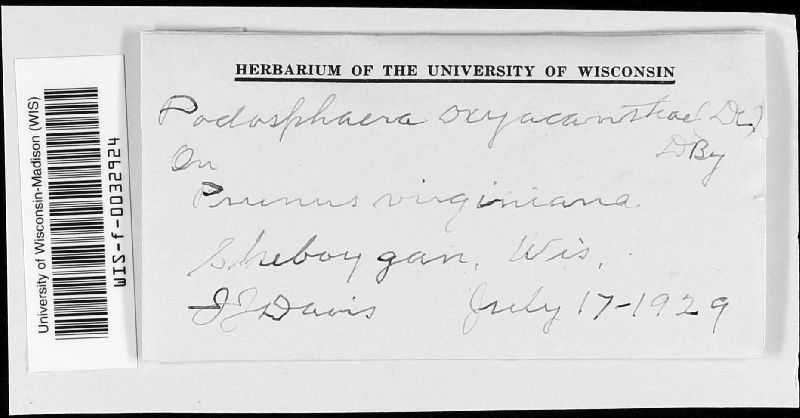 HERBARIUM OF THE UNIVERSITY OF WISCONSIN
Podosphaera oxyacanthae (DC.)
DBy
On
Prunus virginiana.
Sheboygan, Wis.
JJ Davis July 17-1929
University of Wisconsin-Madison (WIS)
WIS-f-0032924